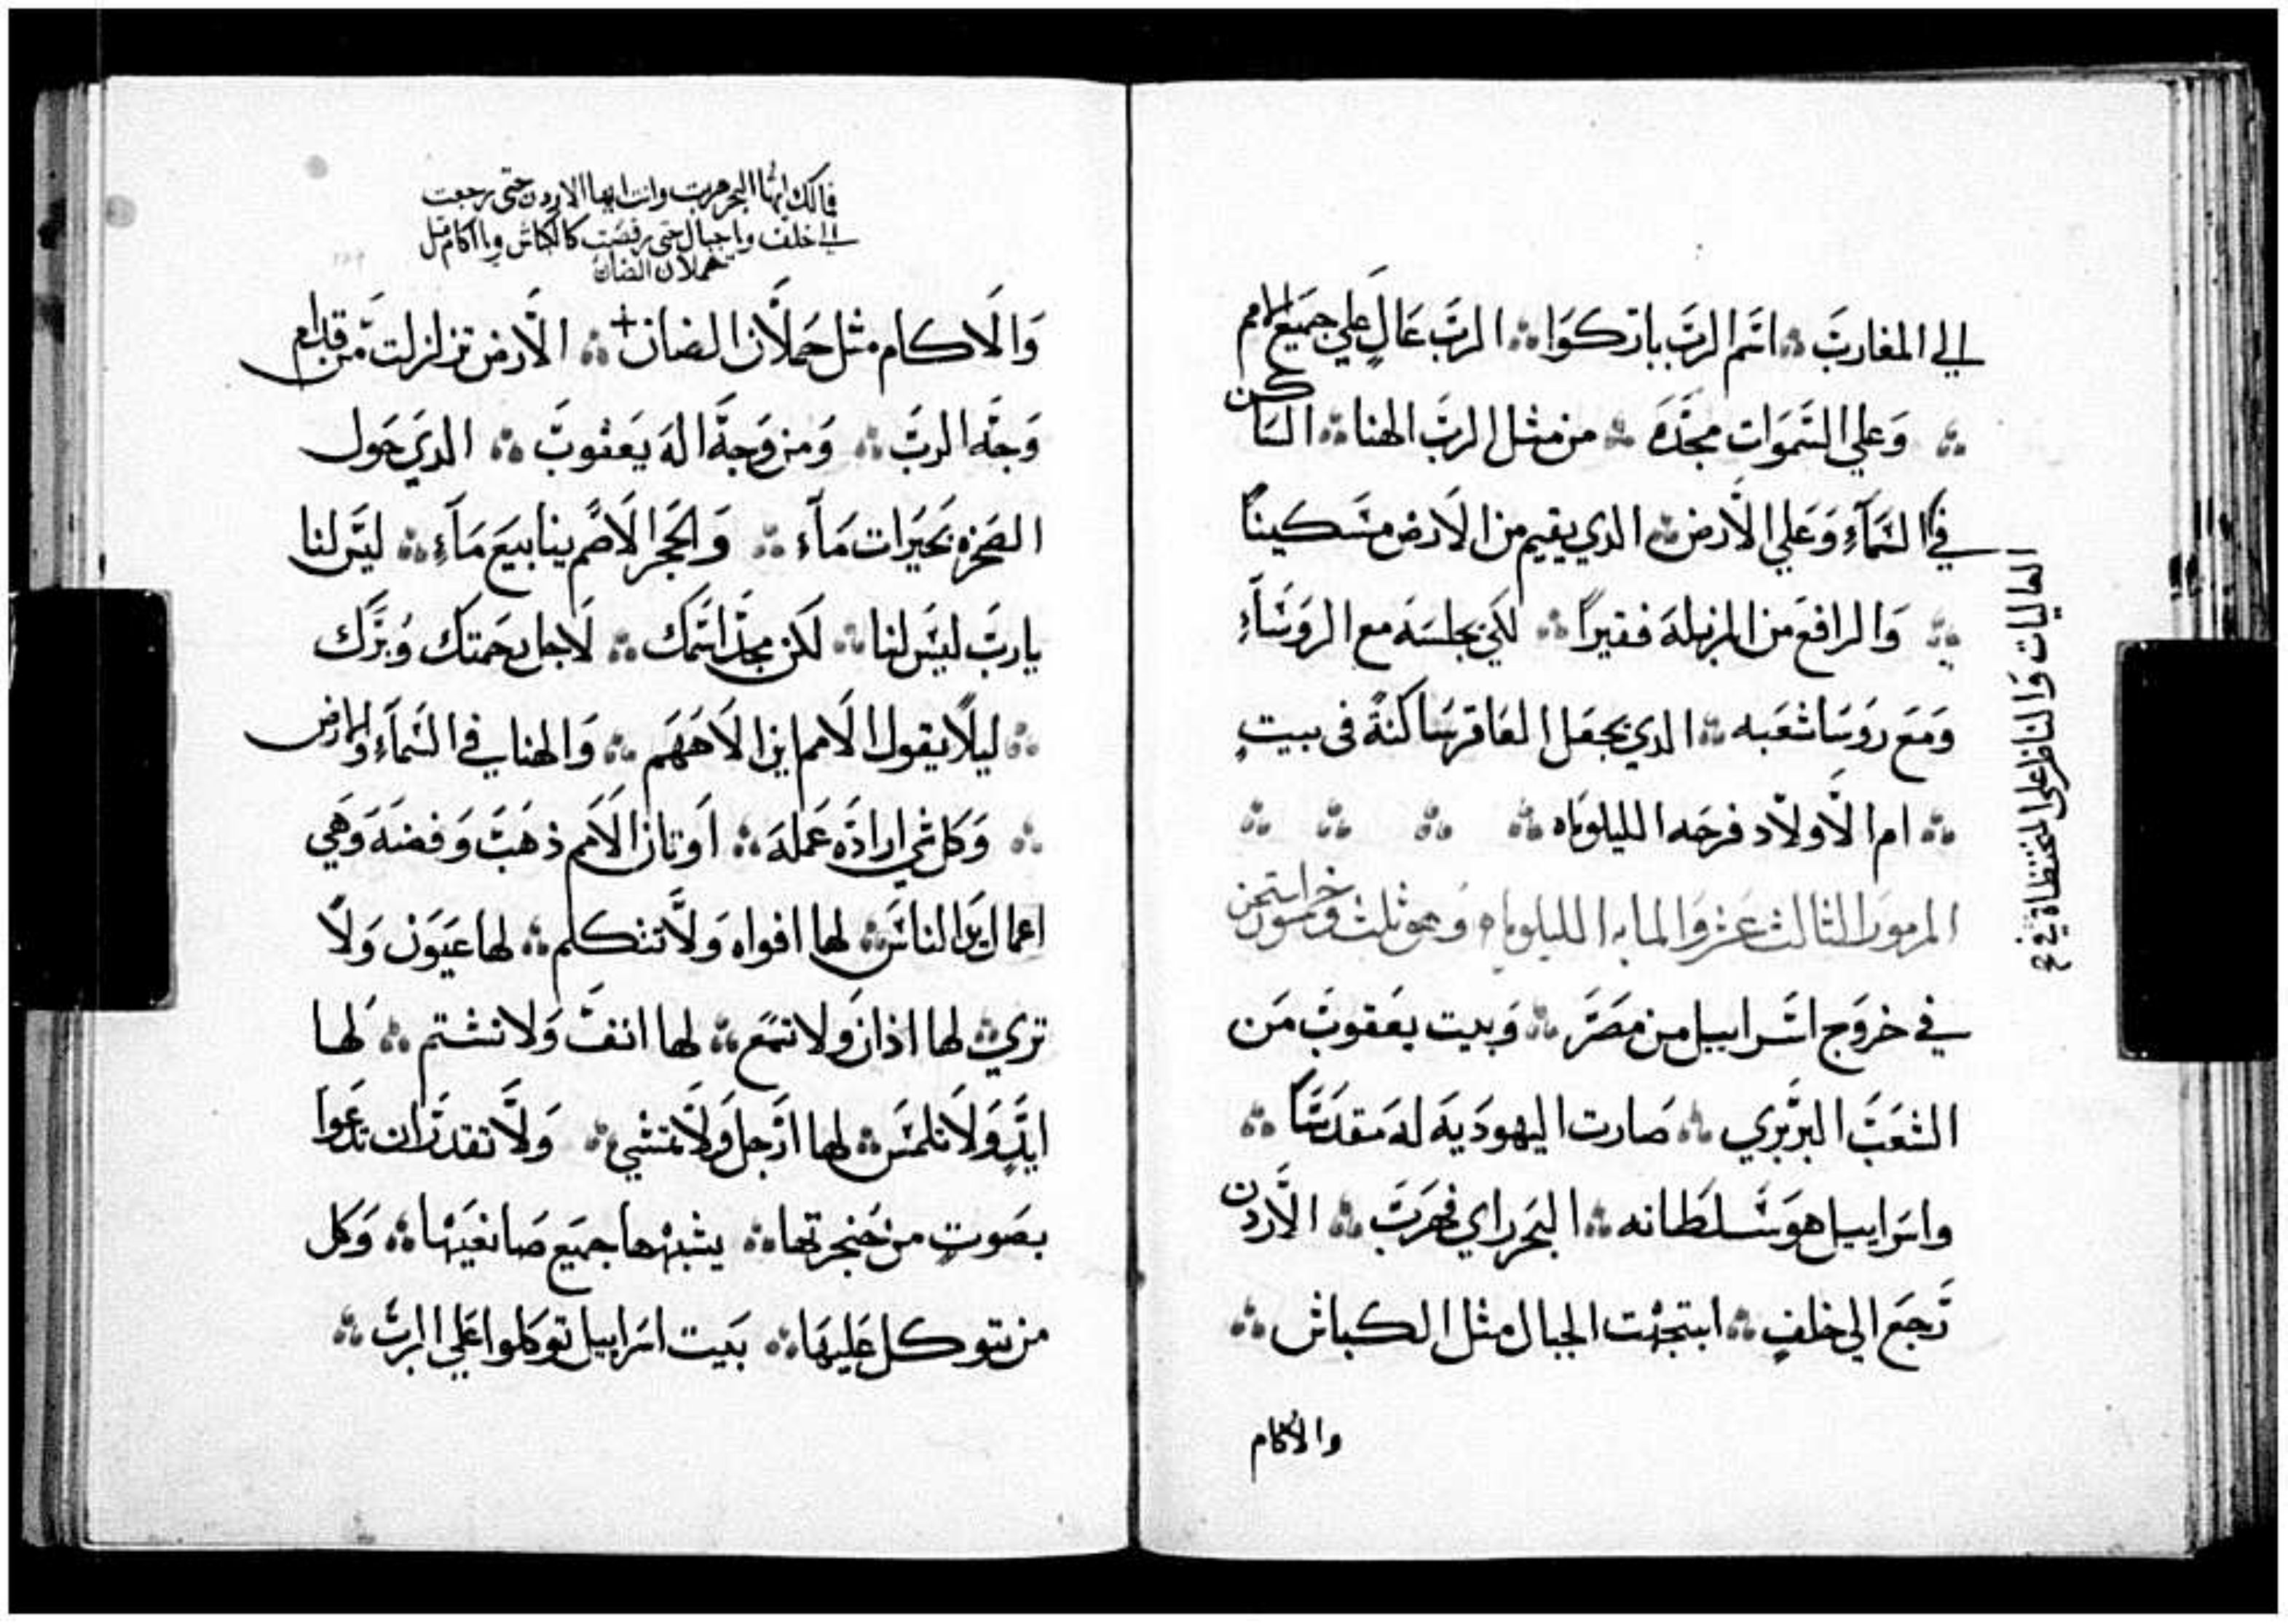 الي المغارب ∴ اسم الرب باركوا ∴ الرب عال علي جميع الامم
∴ وعلي السموات مجده ∴ من مثل الرب الهنا ∴ الساكن
في السماء وعلي الارض ∴ الذي يقيم من الارض مسكينا
∴ والرافع من المزبلة فقيرا ∴ لكي يجلسه مع الروساء
ومع روسا شعبه ∴ الذي يجعل العاقر ساكنة في بيت
∴ ام الاولاد فرحه الليلوياه ∴ ∴ ∴ ∴
المزمور الثالث عشر والمايه الليلوياه وهو ثلث وخمسون
في خروج اسراييل من مصر ∴ وبيت يعقوب من
الشعب البربري ∴ صارت اليهودية له مقدسا ∴
واسراييل هو سلطانه ∴ البحر راي فهرب ∴ الاردن
رجع الي خلف ∴ ابتهجت الجبال مثل الكباش ∴
والاكام
العاليات والناظر علي
فمالك ايها البحر هربت وانت ايها الاردن حتى رجعت
الى خلف ويا جبال حتى رقصت كالكباش ويا اكام مثل
حملان الضان
والاكام مثل حملان الضان + ∴ الارض تزلزلت من قدام
وجه الرب ∴ ومن وجه اله يعقوب ∴ الذي حول
الصخرة بحيرات ماء ∴ والحجر الاصم ينابيع ماء ∴ ليس لنا
يارب ليس لنا ∴ لكن مجد اسمك ∴ لاجل رحمتك وبرك
∴ ليلا يقول الامم اين الاههم ∴ والهنا في السماء والارض
∴ وكل شي اراده عمله ∴ اوتان الامم ذهب وفضه وهي
اعمال ايدي الناس ∴ لها افواه ولا تتكلم ∴ لها عيون ولا
تري ∴ لها اذان ولا تسمع ∴ لها انف ولا تشتم ∴ لها
ايد ولا تلمس ∴ لها ارجل ولا تمشي ∴ ولا تقدر ان تدعوا
بصوت من حنجرتها ∴ يشبهها جميع صانعيها ∴ وكل
من يتوكل عليها ∴ بيت اسراييل توكلوا علي الرب ∴